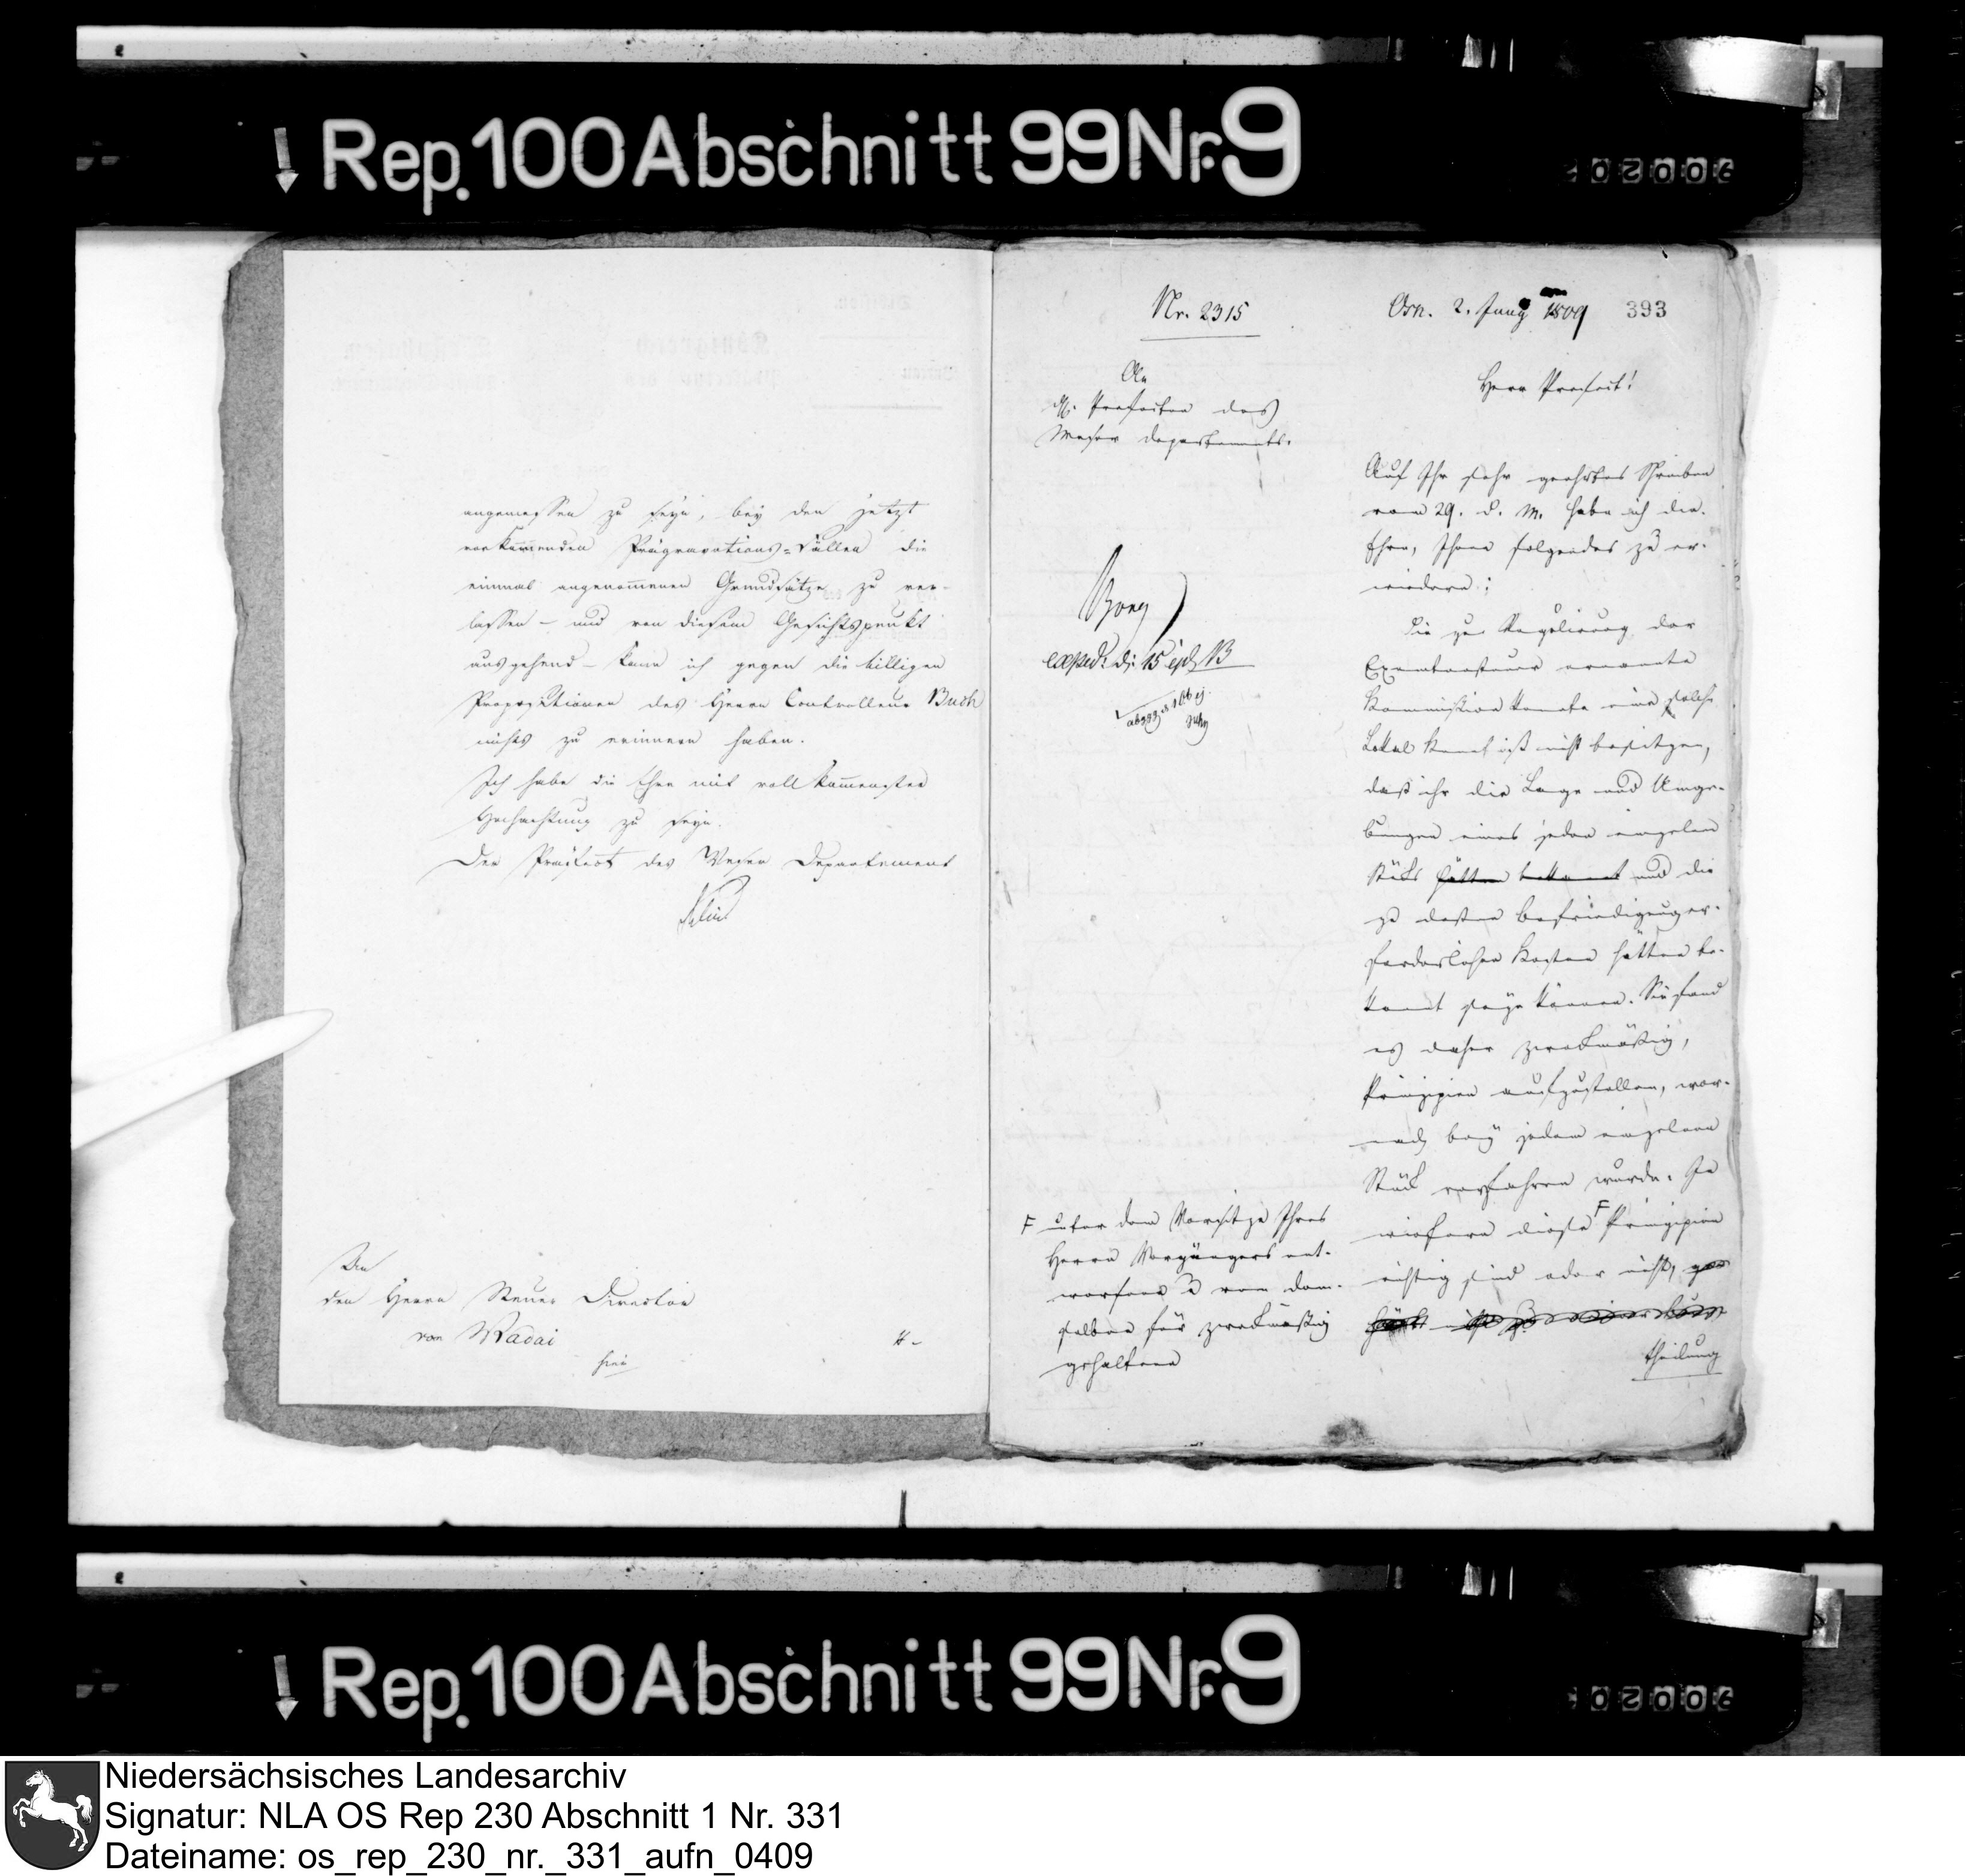 Rep. 100 Abschnitt 99 Nr. 9
angemessen zu seyn, bey den jetzt
vorkommenden Prägravations-Fällen die
einmal angenommenen Grundsätze zu ver-
lassen – und von diesem Gesichtspunkt
ausgehend – kann ich gegen die billigen
Propositionen des Herrn Controlleur Buch
nichts zu erinnern haben.
Ich habe die Ehre mit vollkommenster
Hochachtung zu seyn.
Der Präfect des Weser Departement
An
den Herrn Steuer Director
von Wadai
hier
Nr. 2315
Osn. 2. Juny 1809
393
An
H. Praefecten des
Weser Departements.
Herr Praefect!
Auf Ihr sehr geehrtes Schreiben
vom 29. d. M. habe ich die
Ehre, Ihnen folgendes zu er-
wiedern:
Die zur Regulirung der
Exemtensteuer ernannte
Kommission konnte eine solche
Lokal Kenntniß nicht besitzen,
daß ihr die Lage und Umge-
bungen eines jeden einzelen
Stücks hätten bekannt und die
zu dessen Befriedigung er-
forderlichen Kosten hätten be-
kannt seyn können. Sie fand
es daher zweckmäßig,
Prinzipien aufzustellen, wor-
nach bey jedem einzelnen
Stück verfahren wurde. In
wiefern diese F Prinzipien
richtig sind oder nicht,
theilung
F unter dem Vorsitze Ihres
Herrn Vorgängers ent-
worfene und von dem-
selben für zweckmäßig
gehaltene
Rep. 100 Abschnitt 99 Nr. 9
Niedersächsisches Landesarchiv
Signatur: NLA OS Rep 230 Abschnitt 1 Nr. 331
Dateiname: os_rep_230_nr._331_aufn_0409